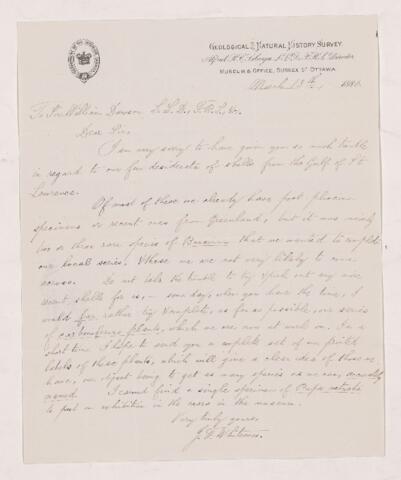 GEOLOGICAL & NATURAL HISTORY SURVEY
Alfred R. C. Selwyn, L.L.D., F.R.S., Director
MUSEUM & OFFICE, SUSSEX ST OTTAWA
March 13th, 188
To Sir William Dawson L.L.D., F.R.S., &c.
Dear Sir,
I am very sorry to have given you so much trouble
in regard to our few desiderata of shells from the Gulf of St
Lawrence.
Of most of these we already have post pliocene
specimens or recent ones from Greenland, but it was mainly
two or three rare species of Buccinum that we wanted to complete
our local series. These we are not very likely to come
across.
Do not take the trouble to try & pick out any more
recent shells for us, — some day, when you have the time, I
would far rather try & complete, as far as possible, our series
of carboniferous plants, which we are now at work on. In a
short time I hope to send you a complete set of our printed
labels of these plants, which will give a clear idea of those we
have, our object being to get as many species as we can, accurately
named. I cannot find a single specimen of Pupa vetusta
to put on exhibition in the cases in the museum.
Very truly yours,
J. F. Whiteaves.